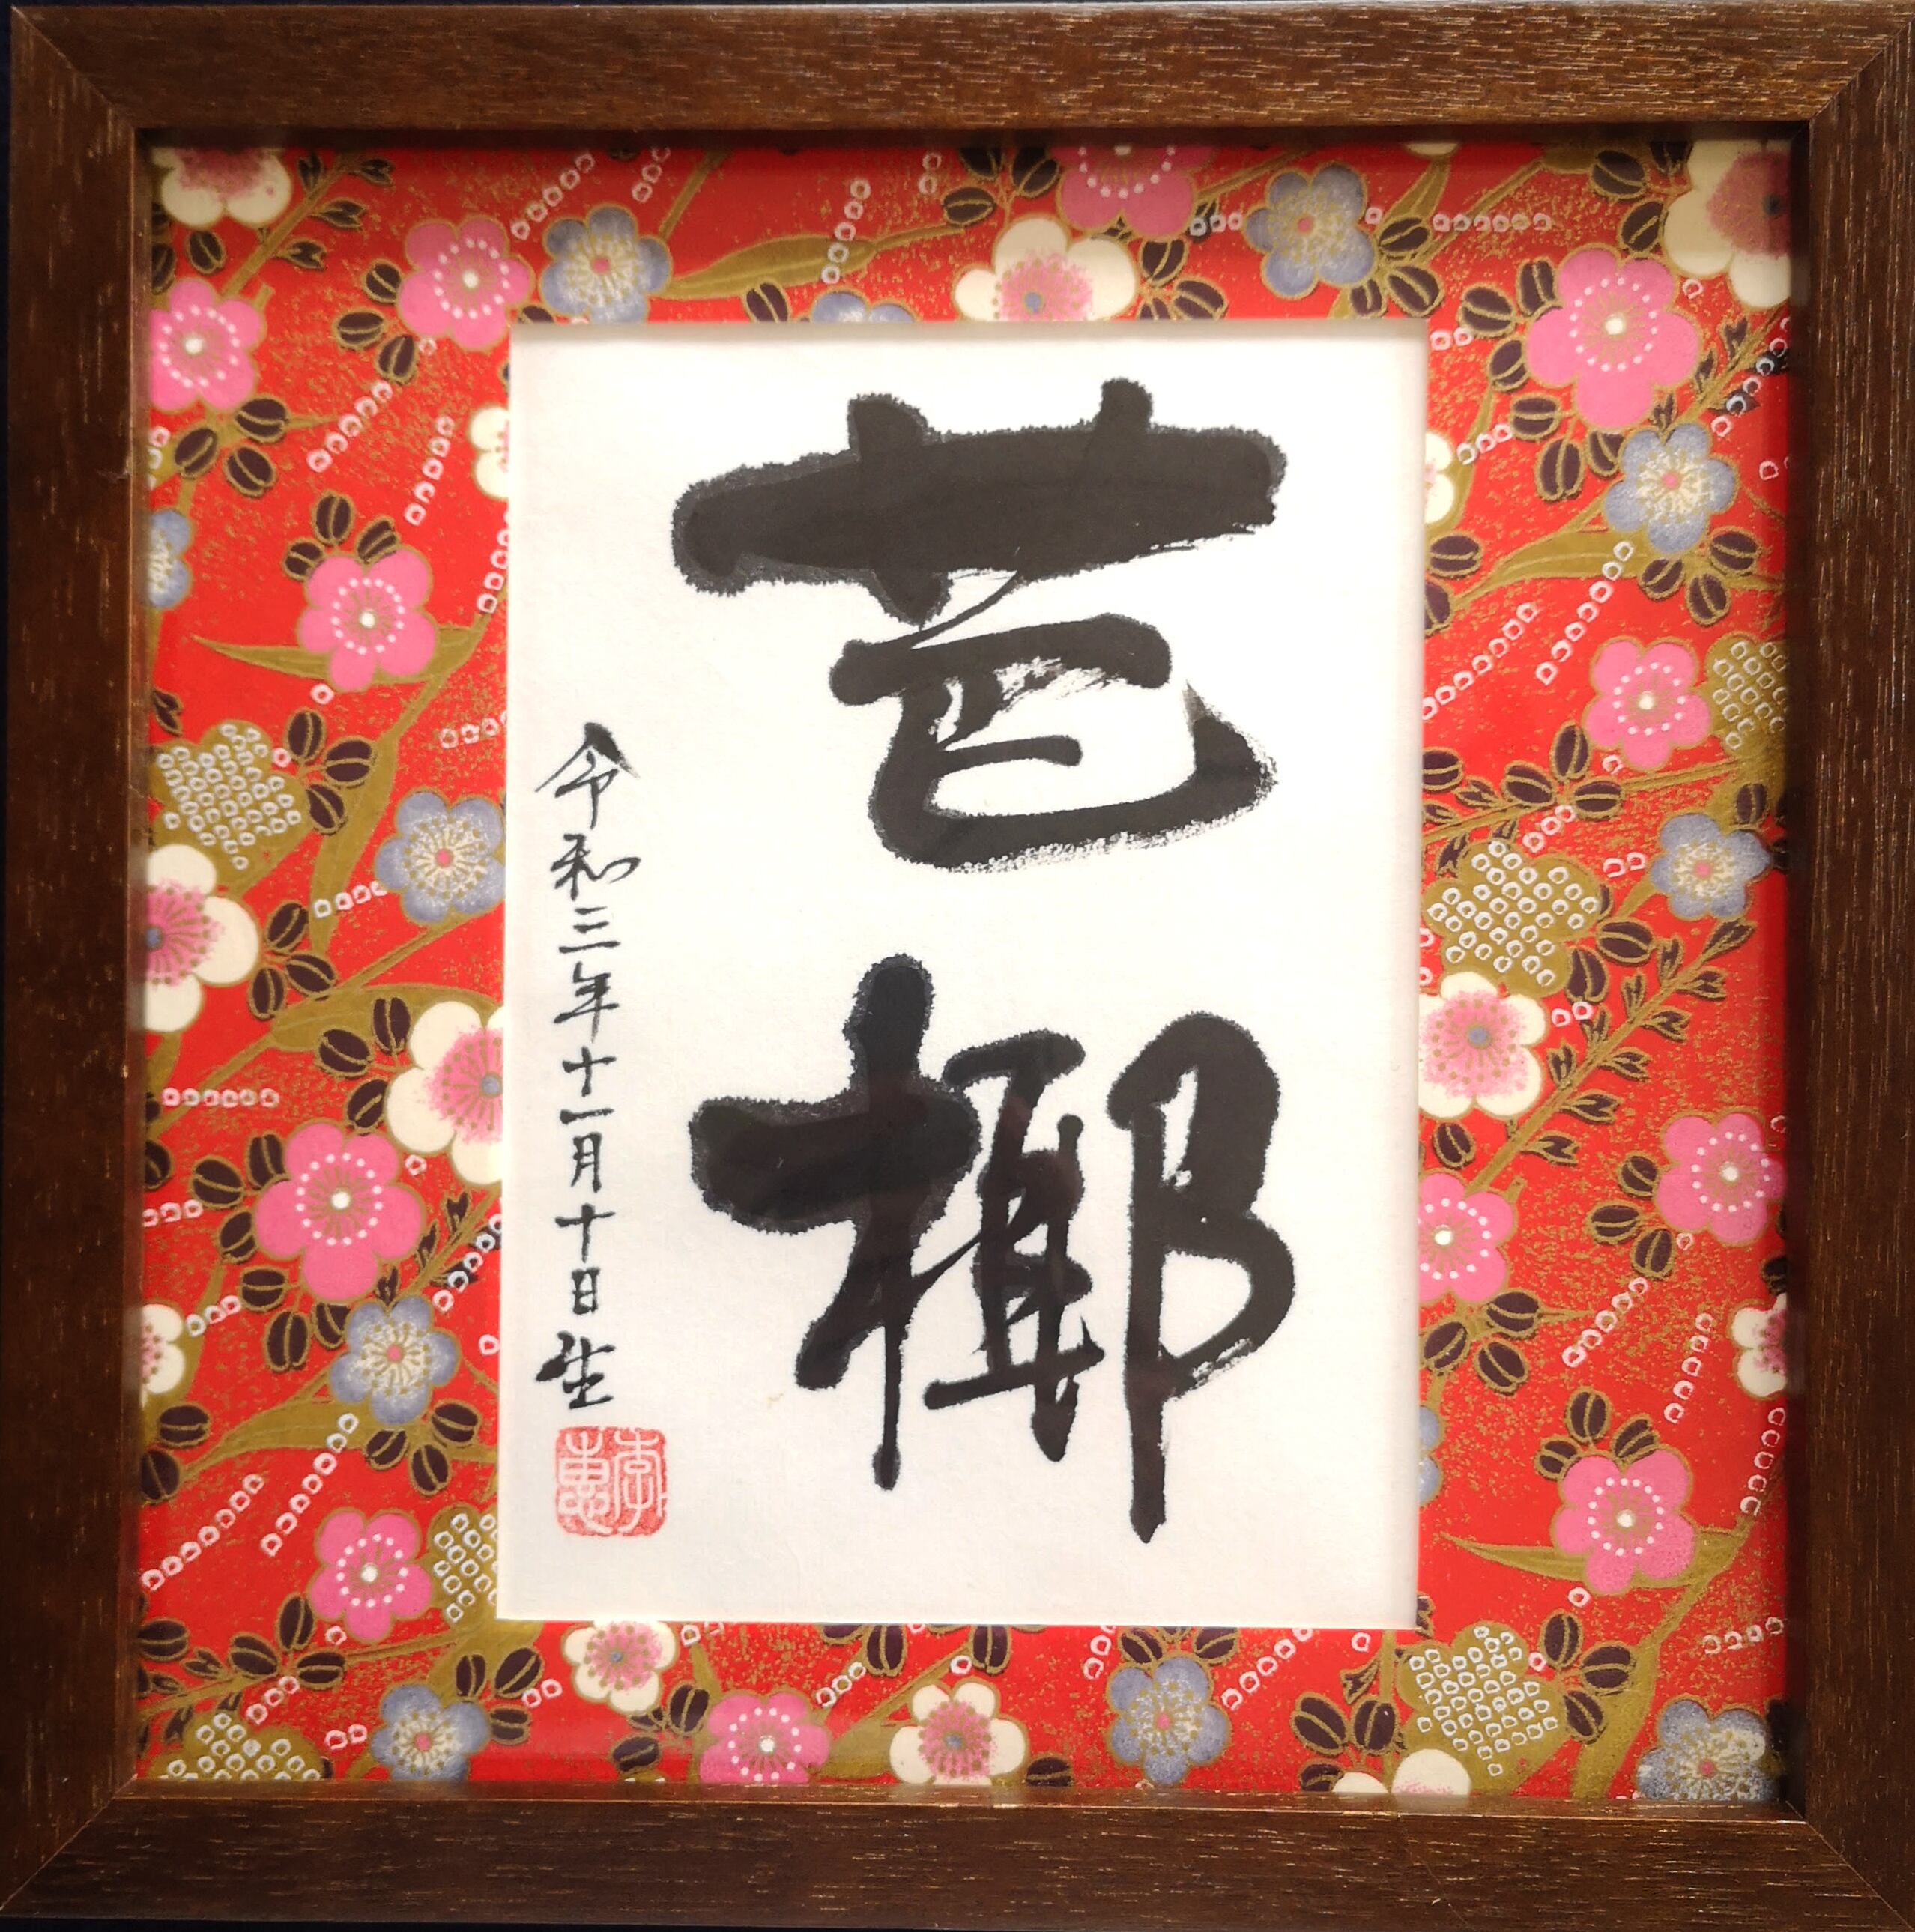 芭椰
令和三年十一月十日生